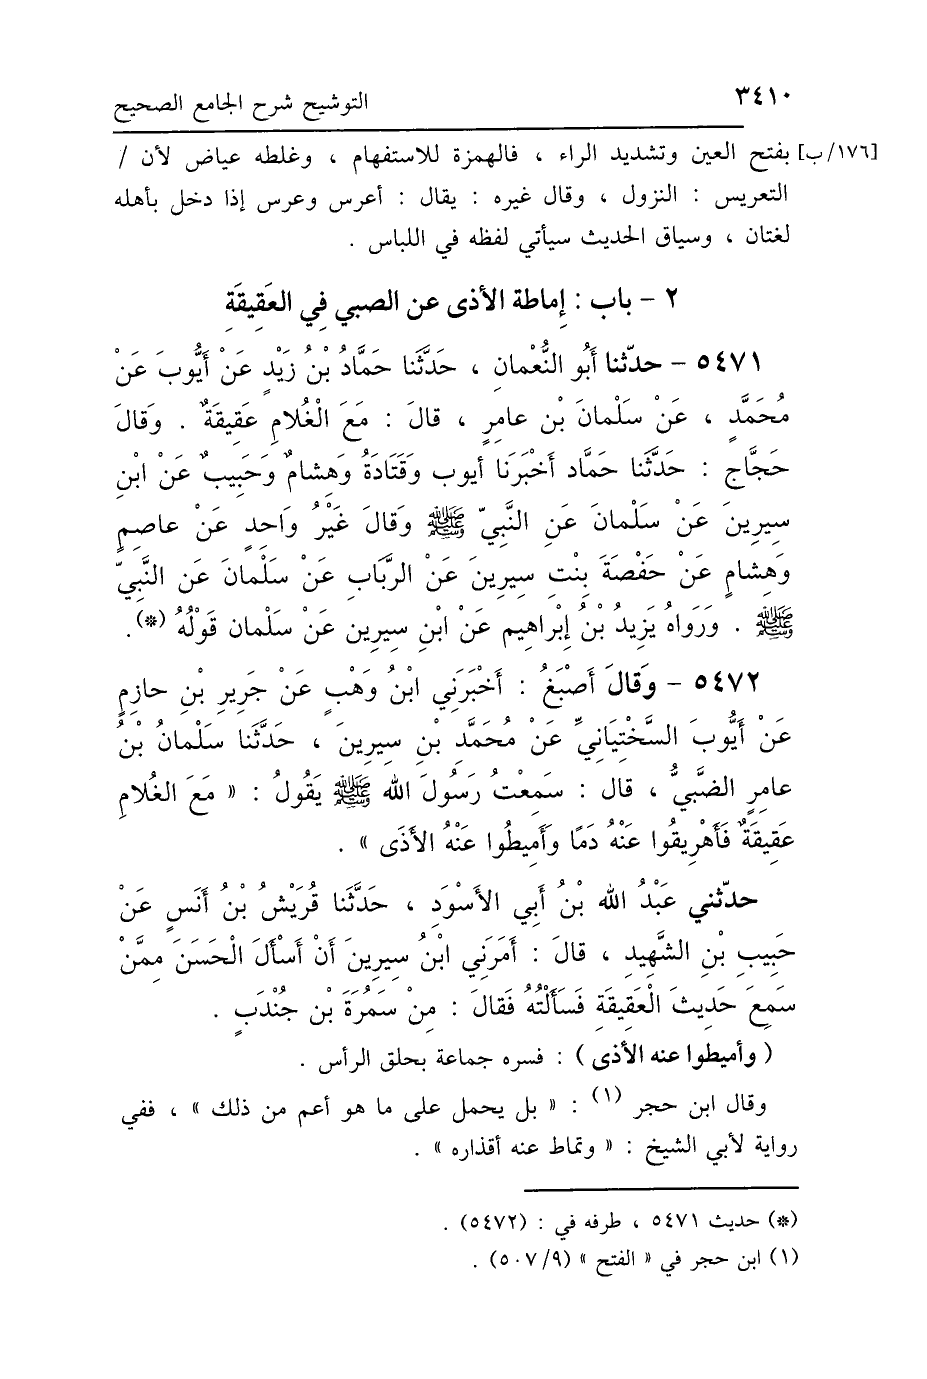 ٣٤١٠
التوشيح شرح الجامع الصحيح
[١٧٦/ب] بفتح العين وتشديد الراء ، فالهمزة للاستفهام ، وغلطه عياض لأن /
التعريس : النزول ، وقال غيره : يقال : أعرس وعرس إذا دخل بأهله
لغتان ، وسياق الحديث سيأتي لفظه في اللباس .
٢ – باب : إِماطة الأذى عن الصبي فِي العَقِيقَةِ
٥٤٧١ – حدّثنا أَبُو النُّعْمانِ ، حَدَّثَنا حَمَّادُ بْنُ زَيْدٍ عَنْ أَيُّوبَ عَنْ
مُحَمَّدٍ ، عَنْ سَلْمانَ بْنِ عامِرٍ ، قالَ : مَعَ الْغُلامِ عَقِيقَةٌ . وَقالَ
حَجَّاج : حَدَّثَنا حَمَّاد أَخْبَرَنا أيوب وَقَتَادَةُ وَهِشامٌ وَحَبِيبٌ عَنْ ابْنِ
سِيرِينَ عَنْ سَلْمانَ عَنِ النَّبيّ ﷺ وَقالَ غَيْرُ وَاحِدٍ عَنْ عاصِمٍ
وَهِشامٍ عَنْ حَفْصَةَ بِنْتِ سِيرِينَ عَنْ الرَّبابِ عَنْ سَلْمانَ عَنِ النَّبيّ
ﷺ . وَرَوَاهُ يَزِيدُ بْنُ إِبْراهِيم عَنْ ابْنِ سِيرِين عَنْ سَلْمان قَوْلُهُ (*).
٥٤٧٢ – وَقالَ أَصْبَغُ : أَخْبَرَنِي ابْنُ وَهْبٍ عَنْ جَرِيرِ بْنِ حازِمٍ
عَنْ أَيُّوبَ السَّخْتِيَانِيِّ عَنْ مُحَمَّدِ بْنِ سِيرِينَ ، حَدَّثَنا سَلْمانُ بْنُ
عامِرٍ الضَّبِّيُّ ، قال : سَمِعْتُ رَسُولَ الله ﷺ يَقُولُ : « مَعَ الغُلامِ
عَقِيقَةٌ فَأَهْرِيقُوا عَنْهُ دَمًا وَأَمِيطُوا عَنْهُ الأَذَى » .
حدّثني عَبْدُ الله بْنُ أَبِي الأَسْوَدِ ، حَدَّثَنا قُرَيْشُ بْنُ أَنَسٍ عَنْ
حَبِيبِ بْنِ الشَّهِيدِ ، قالَ : أَمَرَنِي ابْنُ سِيرِينَ أَنْ أَسْأَلَ الْحَسَنَ مِمَّنْ
سَمِعَ حَدِيثَ الْعَقِيقَةِ فَسَأَلْتُهُ فَقالَ : مِنْ سَمُرَةَ بْنِ جُنْدَبٍ .
( وأميطوا عنه الأذى ) : فسره جماعة بحلق الرأس .
وقال ابن حجر (١) : « بل يحمل على ما هو أعم من ذلك » ، ففي
رواية لأبي الشيخ : « وتماط عنه أقذاره » .
(*) حديث ٥٤٧١ ، طرفه في : (٥٤٧٢) .
(١) ابن حجر في « الفتح » (٥٠٧/٩) .